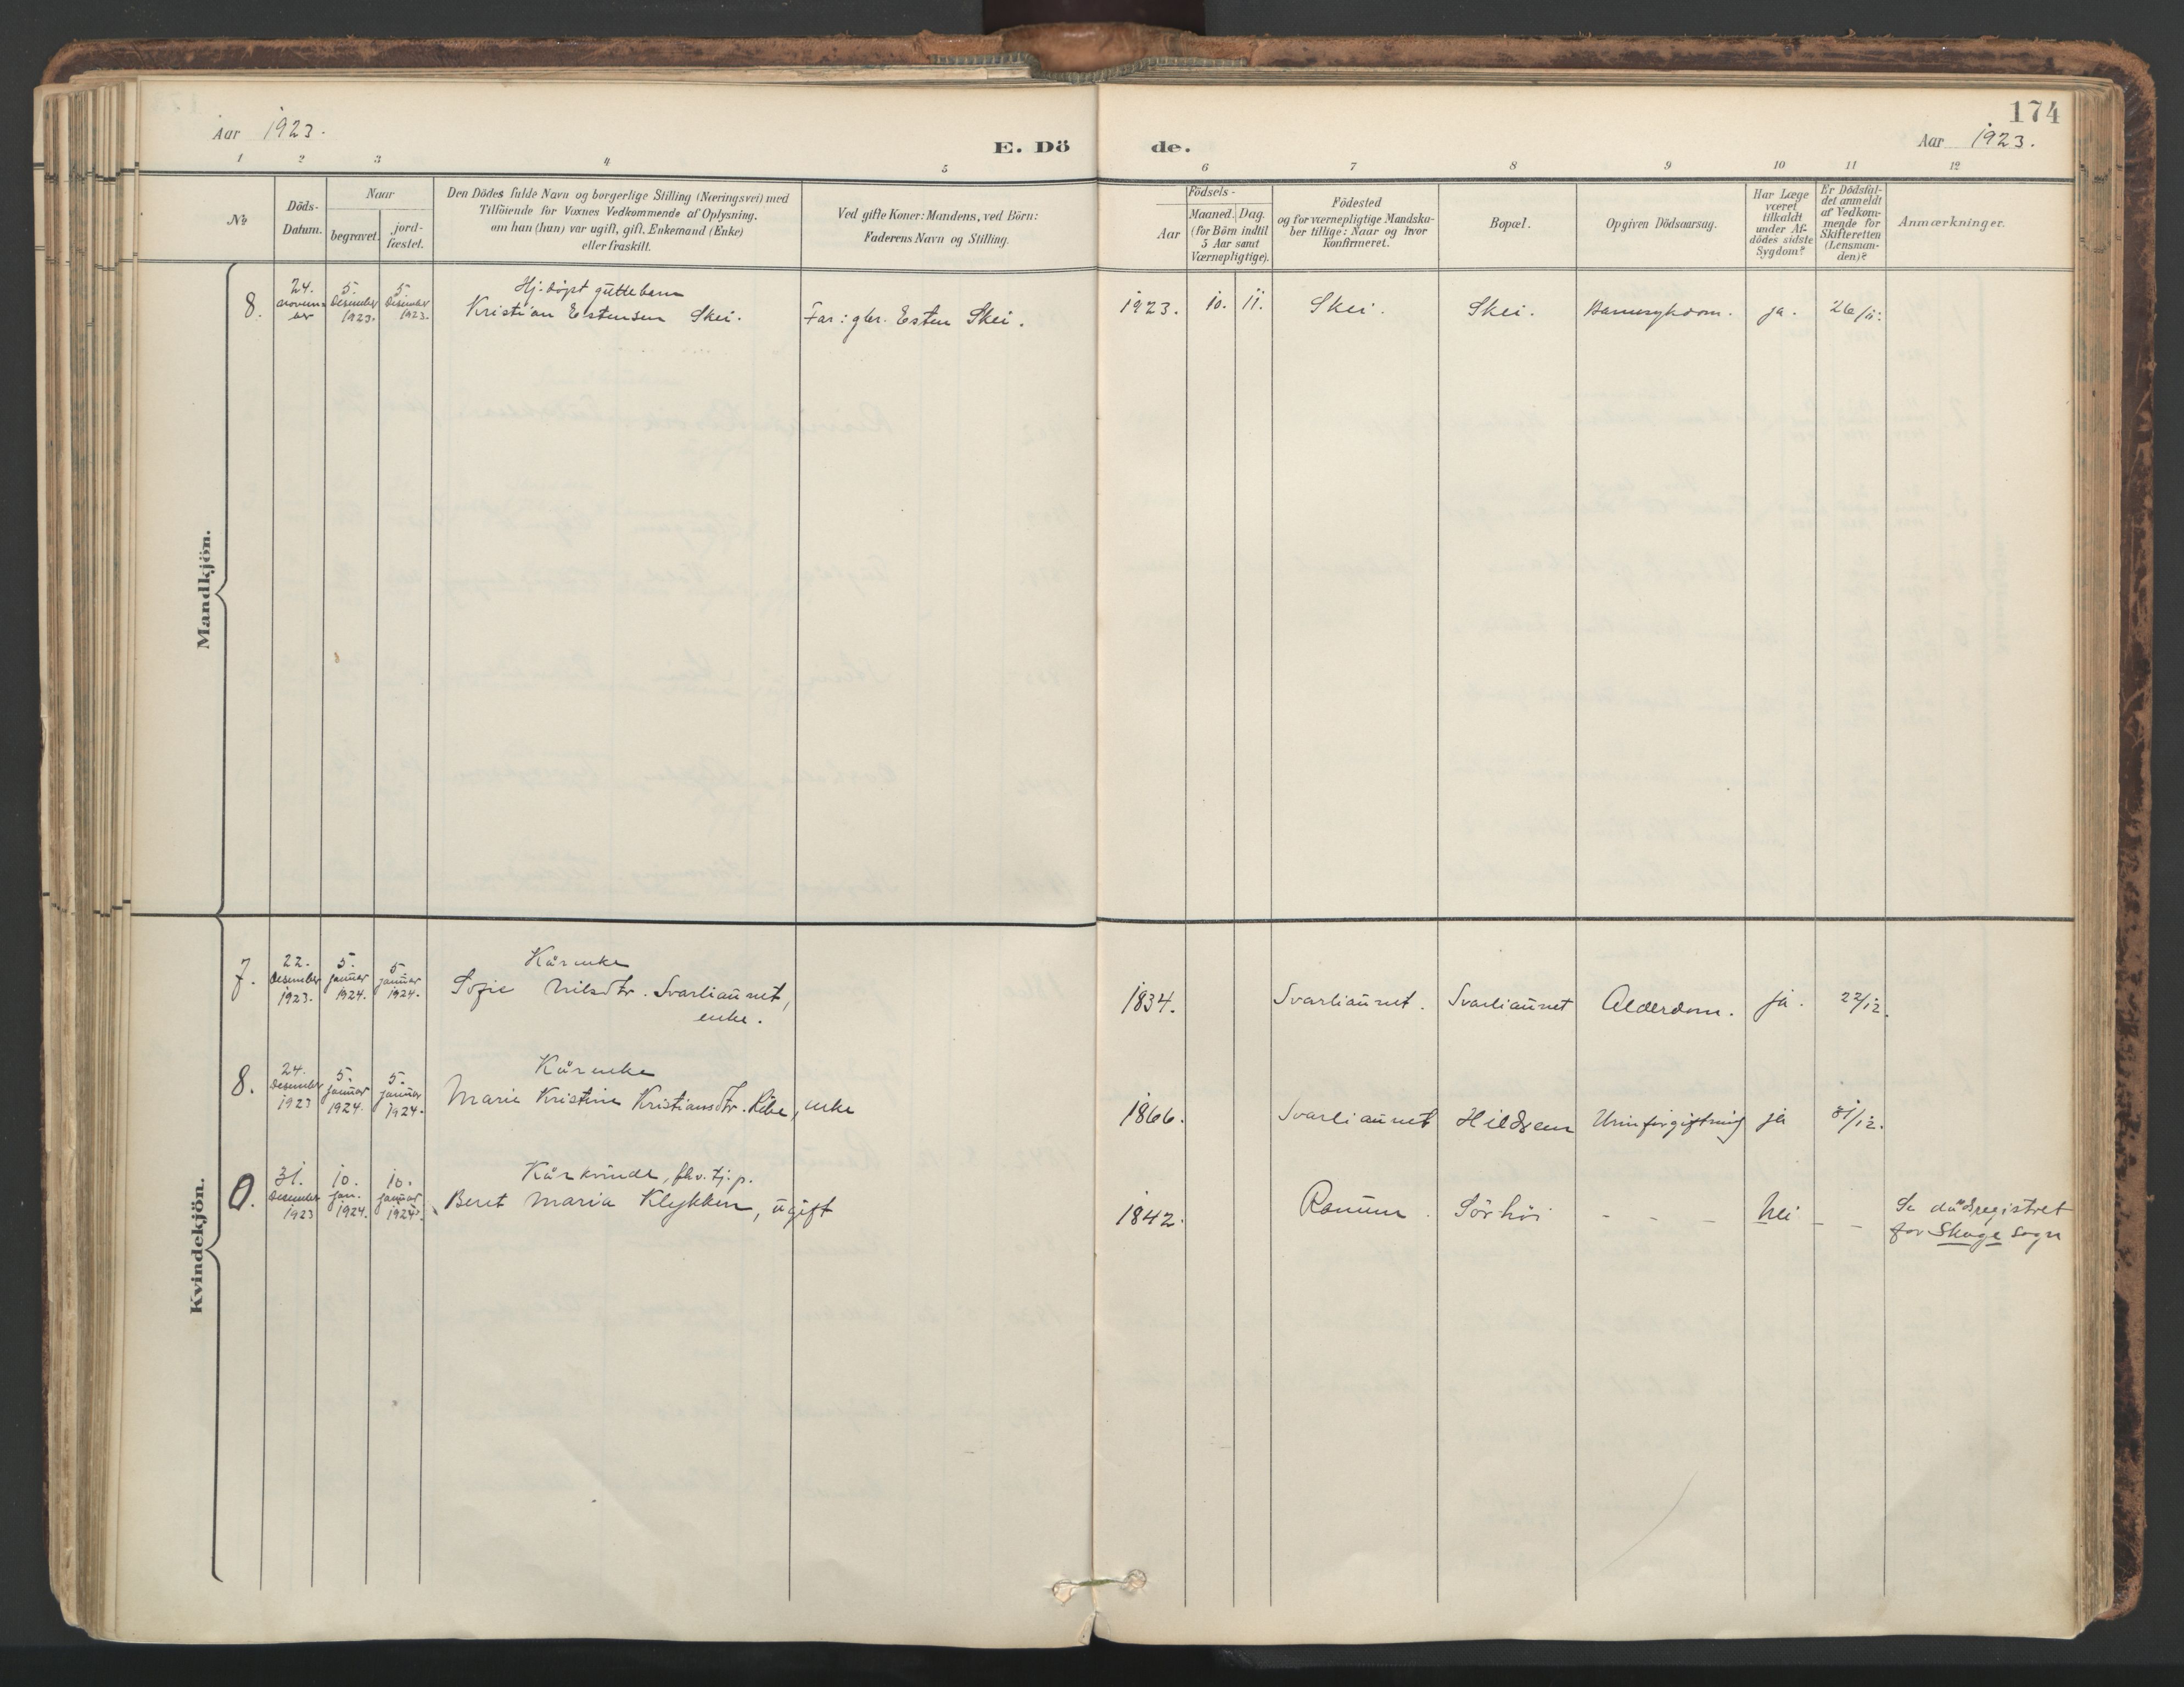 174
Aar 1923.
E. Döde.
Aar 1923.
1 2 3 4 5 6 7 8 9 10 11 12
№
Döds-Datum.
Naar
begravet.
jord-fæstet.
Den Dödes fulde Navn og borgerlige Stilling (Næringsvei) med
Tilföiende for Voxnes Vedkommende af Oplysning.
om han (hun) var ugift, gift, Enkemand (Enke)
eller fraskilt.
Ved gifte Koner: Mandens, ved Börn:
Faderens Navn og Stilling.
Födsels-
Aar
Maaned. Dag.
(for Börn indtil
5 Aar samt
Værnepligtige).
Födested
og for værnepligtige Mandska-
ber tillige: Naar og hvor
Konfirmeret.
Bopæl.
Opgiven Dödsaarsag.
Har Læge
været
tilkaldt
under Af-
dödes sidste
Sygdom?
Er Dödsfal-
det anmeldt
af Vedkom-
mende for
Skifteretten
(Lensman-
den)?
Anmærkninger.
Mandkjön.
8.
24.
november
5.
Desember
1923.
5.
Desember
1923.
Hj. døpt guttebarn
Kristian Estensen Skei.
Far: gbr. Esten Skei.
1923.
10.
11.
Skei.
Skei.
Barnesykdom.
ja.
26/11.
Kvindekjön.
7.
22.
Desember
1923.
5.
januar
1924.
5
januar
1924.
Kårenke
Sofie Nilsdtr. Svarliaunet,
enke.
1834.
Svarliaunet.
Svarliaunet
Alderdom.
ja.
22/12.
8.
24.
Desember
1923
5.
januar
1924.
5.
januar
1924.
Kårenke
Marie Kristine Kristiansdtr. , enke
1866.
Svarliaunet
Hildsem
Urinforgiftning
ja
31/12.
0.
31.
Desember
1923
10.
jan.
1924.
10.
januar
1924.
Kårkvinde, fhv. tj.p.
Beret Maria Klykken, ugift
1842.
Ranum.
Sörhöi
- - -
nei
- -
Se dødsregistret
for Skage sogn